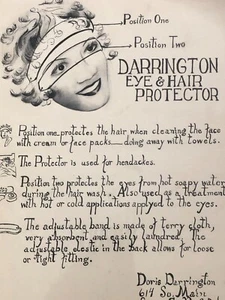 Position One
Position Two
DARRINGTON
EYE & HAIR
PROTECTOR
Position one, protects the hair when cleaning the face
with cream or face packs__ doing away with towels.
The Protector is used for headaches.
Position two protects the eyes from hot soapy water
during the hair wash. Also used as a treatment
with hot or cold applications applyed to the eyes.
The adjustable band is made of terry cloth,
very absorbent and easily laundried. The
adjustable elastic in the back allows for loose
or tight fitting.
Doris Darrington
614 So. Main